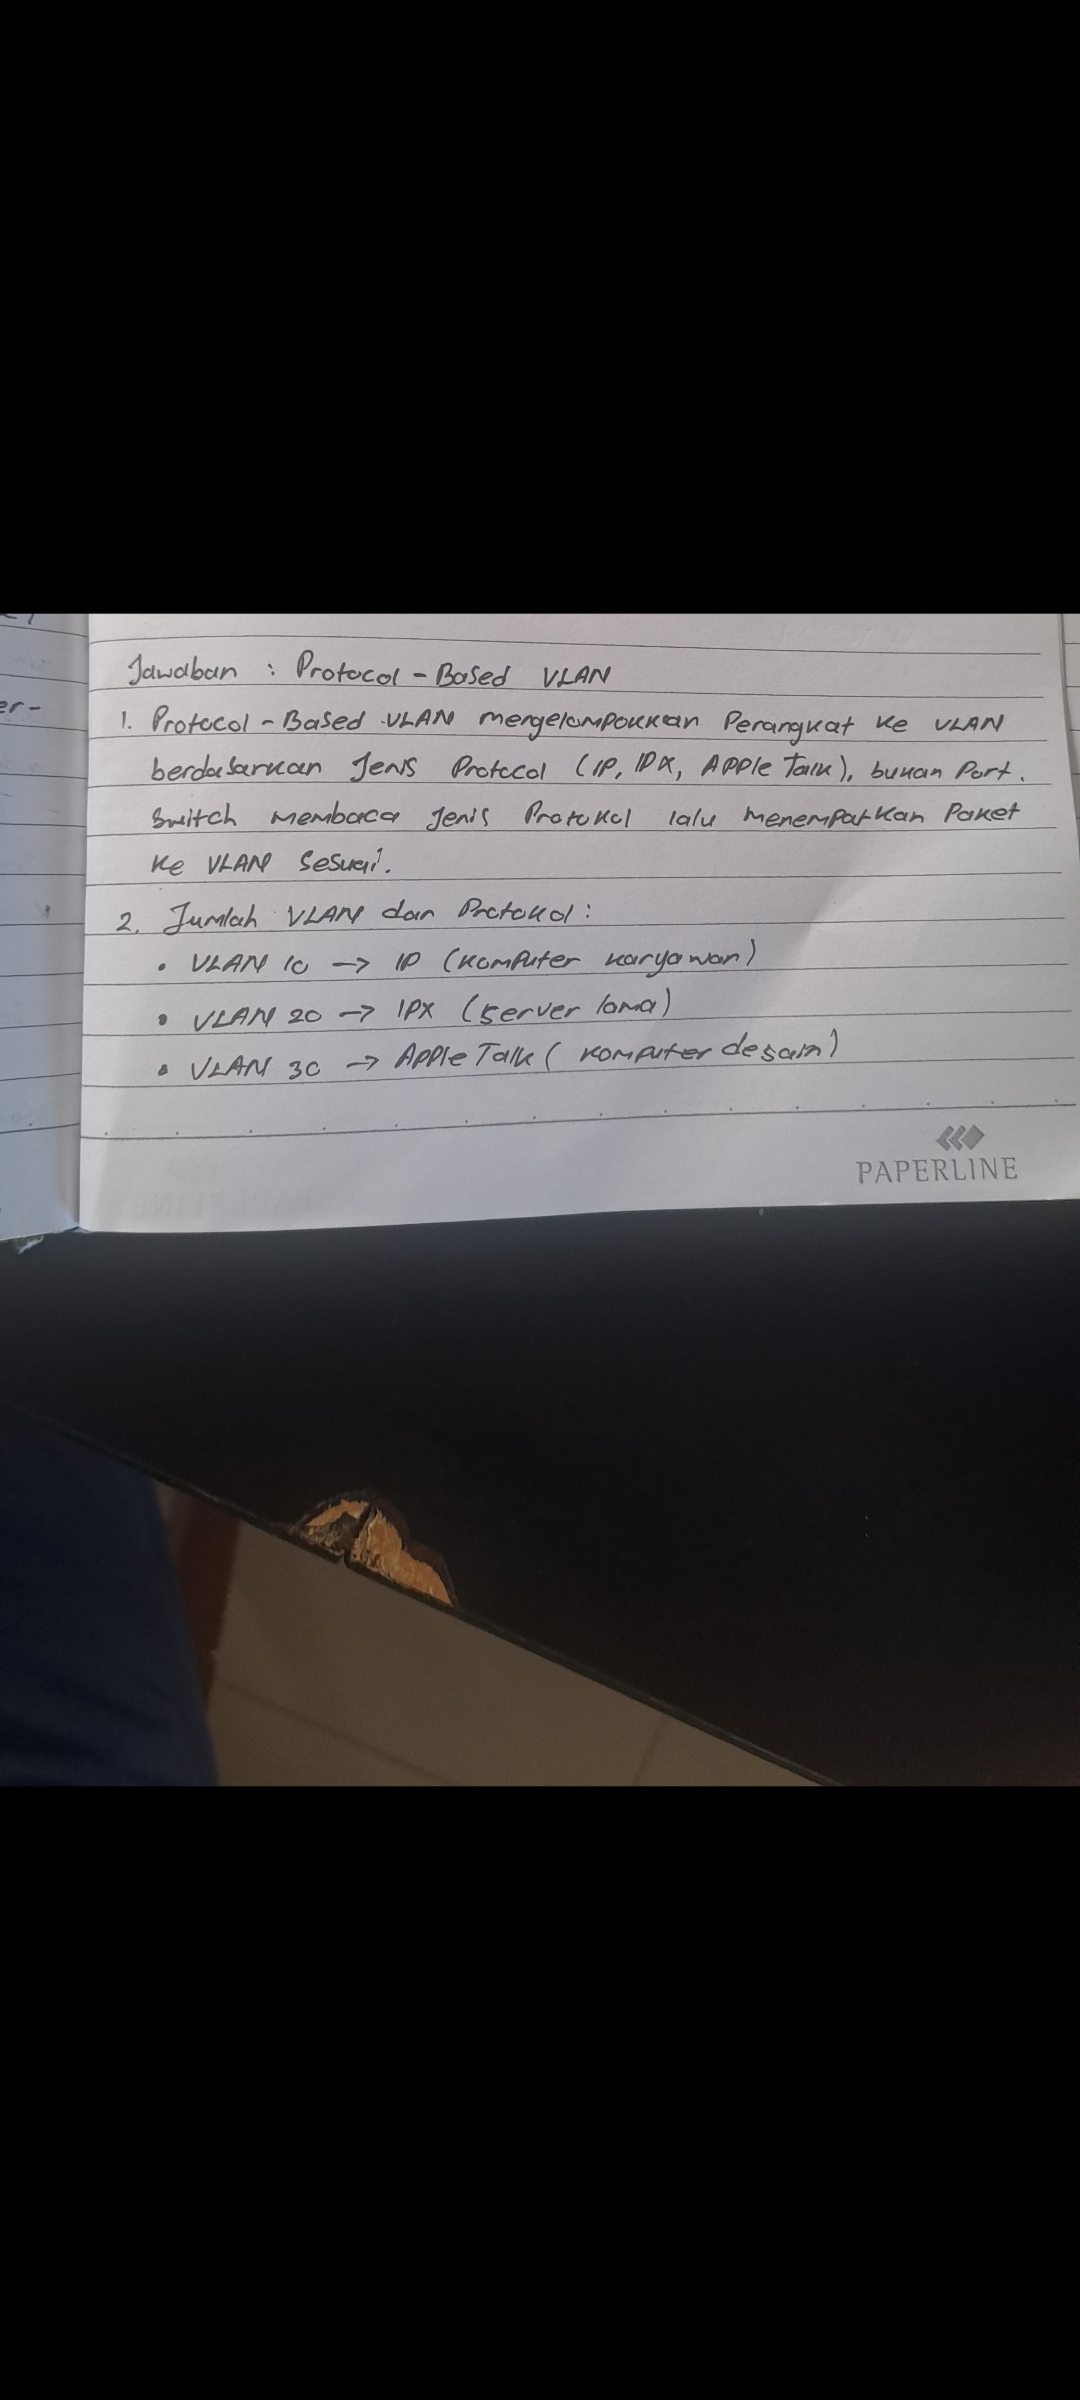 er-
Jawaban : Protocol - Based VLAN
1. Protocol - Based VLAN mengelompokkan Perangkat ke VLAN
berdasarkan Jenis Protocol (IP, IPX, Apple Talk), bukan Port.
Switch membaca Jenis Protokol lalu menempatkan Paket
ke VLAN Sesuai.
2. Jumlah VLAN dan Protokol :
• VLAN 10 → IP (Komputer karyawan)
• VLAN 20 → IPX (server lama)
• VLAN 30 → Apple Talk ( komputer desain)
PAPERLINE